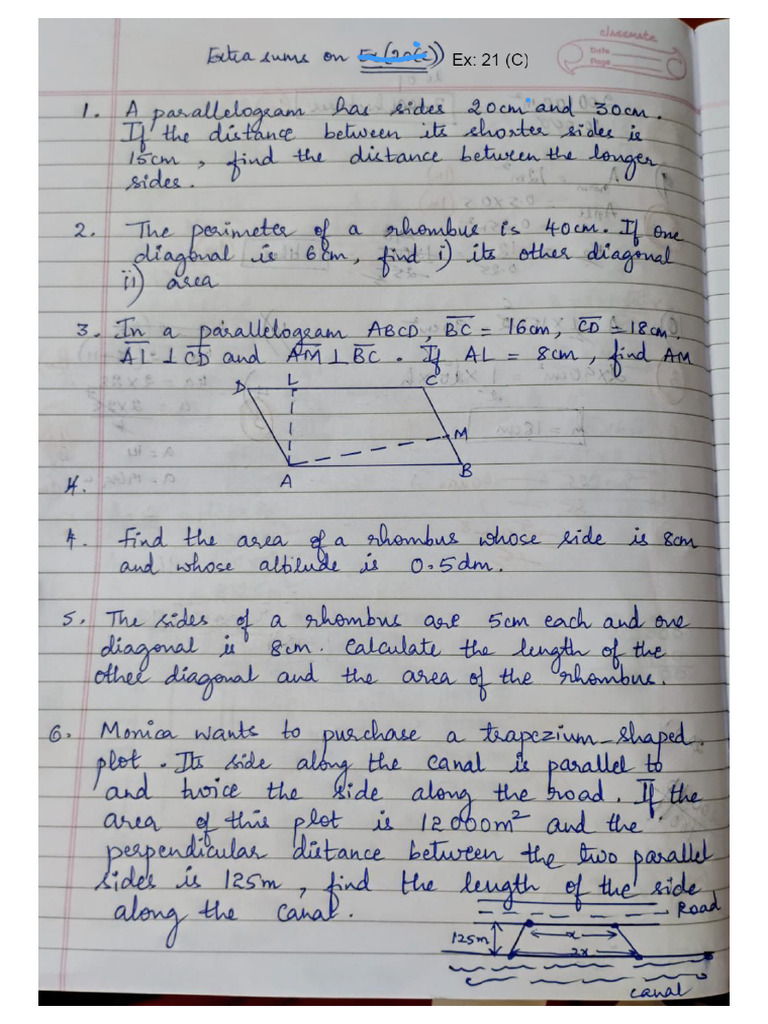 classmate
Date
Page
Extra sums on Ex (20(C)) Ex: 21 (C)
1. A parallelogram has sides 20cm and 30cm.
If the distance between its shorter sides is
15cm, find the distance between the longer
sides.
2. The perimeter of a rhombus is 40cm. If one
diagonal is 6cm, find i) its other diagonal
ii) area
3. In a parallelogram ABCD, BC = 16cm, CD = 18cm,
AL ⊥ CD and AM ⊥ BC. If AL = 8cm, find AM
D L C
M
A B
4.
4. Find the area of a rhombus whose side is 8cm
and whose altitude is 0.5dm.
5. The sides of a rhombus are 5cm each and one
diagonal is 8cm. Calculate the length of the
other diagonal and the area of the rhombus.
6. Monica wants to purchase a trapezium-shaped
plot. Its side along the canal is parallel to
and twice the side along the road. If the
area of this plot is 12000m² and the
perpendicular distance between the two parallel
sides is 125m, find the length of the side
along the canal.
Road
125m x
2x
canal